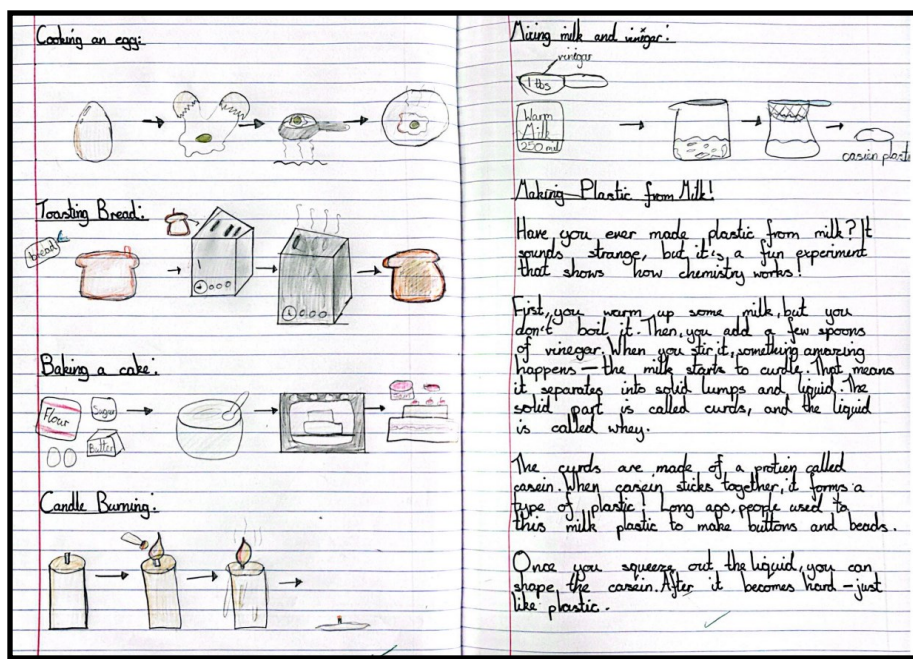 Cooking an egg:
Toasting Bread:
bread
Baking a cake:
Flour
Sugar
Butter
Candle Burning:
Mixing milk and vinegar:
vinegar
1 tbs
Warm
Milk
250 ml
casien plastic
Making Plastic from Milk!
Have you ever made plastic from milk? It
sounds strange, but it's a fun experiment
that shows how chemistry works!
First, you warm up some milk, but you
don't boil it. Then, you add a few spoons
of vinegar. When you stir it, something amazing
happens — the milk starts to curdle. That means
it separates into solid lumps and liquid. The
solid part is called curds, and the liquid
is called whey.
The curds are made of a protien called
casein. When casein sticks together, it forms a
type of plastic! Long ago, people used to
this milk plastic to make buttons and beads.
Once you squeeze out the liquid, you can
shape the casein. After it becomes hard – just
like plastic.